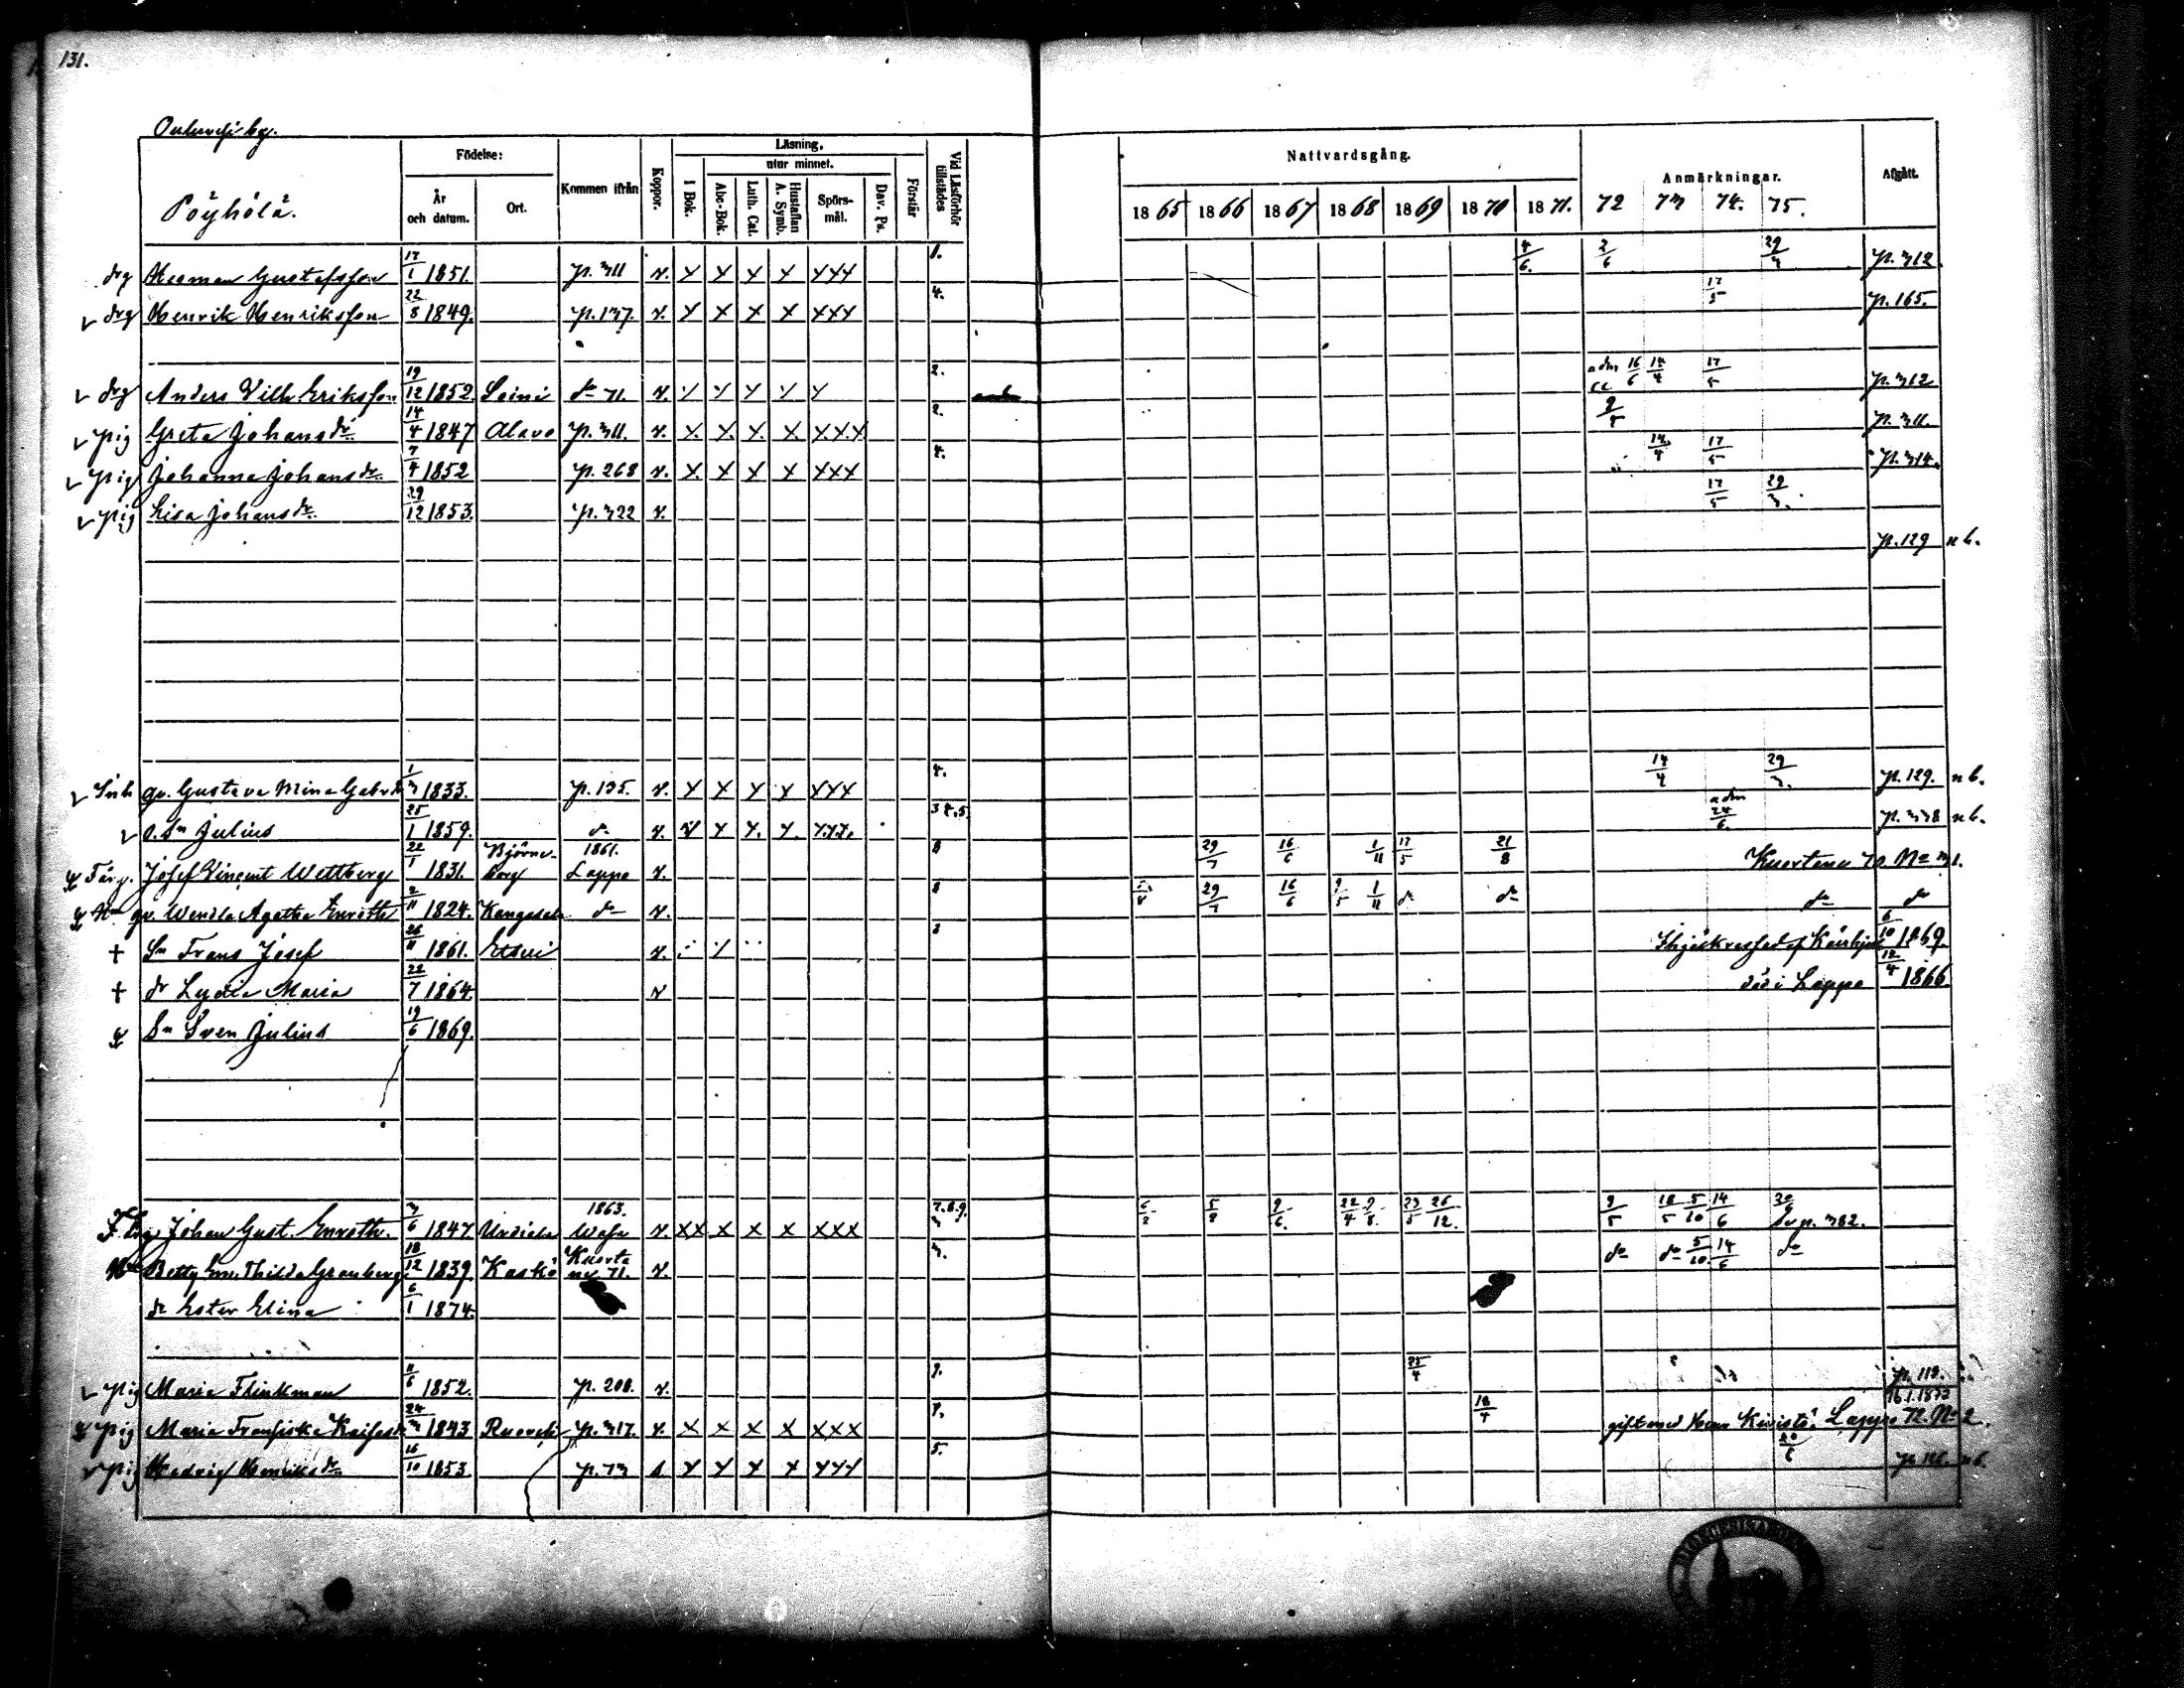 131.
by.
Pöyhölä.
Födelse:
År och datum.
Ort.
Kommen ifrån
Koppor.
Läsning,
utur minnet.
i Bok.
Abc-Bok.
Luth. Cat.
Hustaflan A. Symb.
Spörsmål.
Dav. Ps.
Förstår
Vid Läsförhör tillstädes
Nattvardsgång.
1865 1866 1867 1868 1869 1870 1871.
Anmärkningar.
72 73 74. 75.
Afgått.
drg Herman Gustafsson 17/1 1851. p. 311 v. x x x x xxx 1. 4/6. 2/6 29/3 p. 312
v drg Henrik Henriksson 22/8 1849. p. 137. v. x x x x xxx 4. 17/5 p. 165.
v drg Anders Vilh Eriksson 19/12 1852 Soini do 71. v. 2. adm 16/6 14/4 17/5 p. 312
v pig Greta Johansdr 14/4 1847 Alavo p. 311. v. x. x. x. x. x.x.x 2. 9/5 p. 311.
v pig Johanna Johansdr 7/4 1852 p. 268 v. x. x x x xxx 4. 14/4 17/5 p. 314.
v pig Lisa Johansdr 29/12 1853. p. 322 v. 17/5 29/3.
p. 129 nb.
v Inh gv. Gustava Mina Gabrdr 1/3 1833. p. 135. v. x x x x xxx 4. 14/4 29/3. p. 129. nb.
v o. Sn Julius 25/1 1859. do v. 3 4.5. adm 24/6. p. 338 nb.
Färg. Josef Vincent Wettberg 22/1 1831. Björneborg 1861. Lappo v. 29/7 16/6 1/11 17/5 21/8 Kuortane 70. No 31.
Hu gv. Wendla Agatha Enroth 2/11 1824. Kangasala do v. 29/7 16/6 9/5 1/11 do do do do
+ Sn Frans Josef 26/11 1861. Etseri v. 3 6/10 1869.
+ dr Lydia Maria 22/7 1864. v död i Lappo 12/4 1866.
Sn Sven Julius 19/6 1869.
Johan Gust. Enroth. 3/6 1847. Urdiala 1863. Wasa v. xx x x x xxx 7.8.9. 3 5/8 9/6. 22/4 9/8. 23/5 26/12. 9/5 18/5 5/10 14/6 p. 382.
Hu Betty Em. Thilda Granberg 18/12 1839. Kaskö Kuortane 71. v. 3. do do 5/10. 14/6 do
dr Ester Elina 6/1 1874.
v pig Maria Flinkman 11/6 1852. p. 208. v. 9. 25/4 p. 119.
pig Maria Fransiska 24/3 1843 Ruovesi p. 317. v. x x x x xxx 18/4 gift med Herm Kivistö. Lappo 72. No 2. 16.1.1873
v pig Hedvig Henriksdr 16/10 1853. p. 73 5. nb.